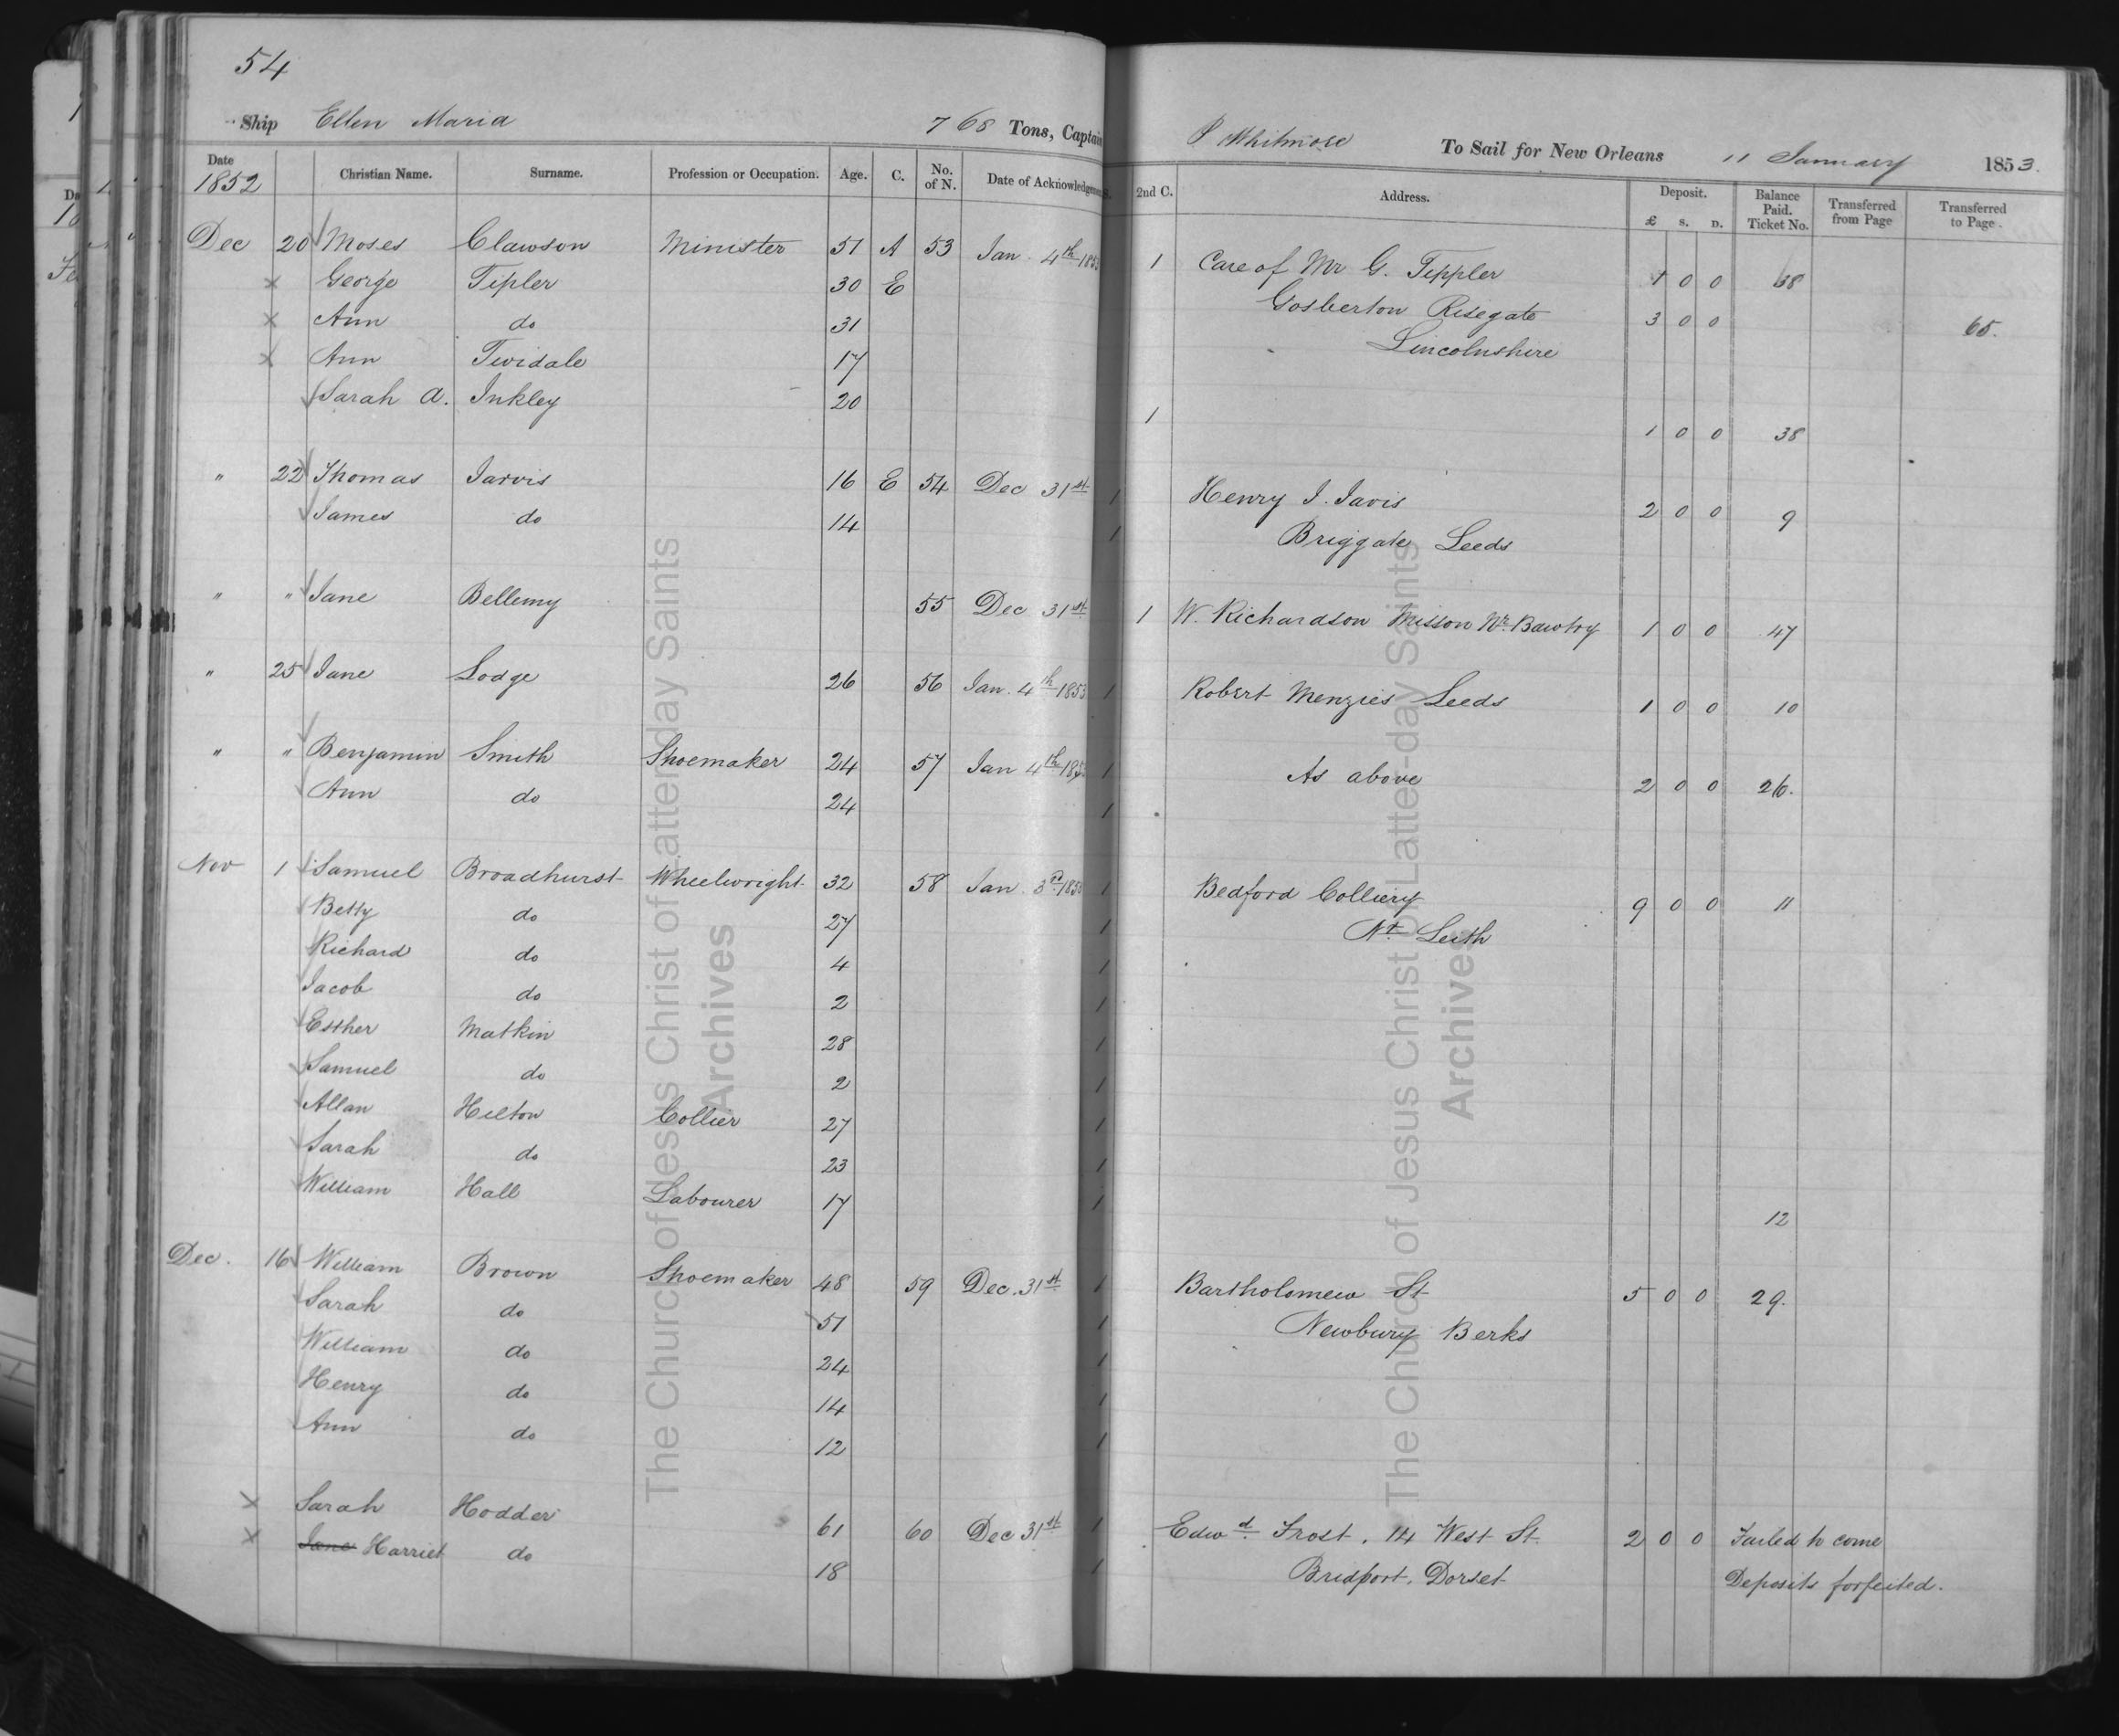 54
Ship Ellen Maria 768 Tons, Captain P Whitmore To Sail for New Orleans 11 January 1853.
Date 1852 Christian Name. Surname. Profession or Occupation. Age. C. No. of N. Date of Acknowledgment 2nd C. Address. Deposit. £ s. D. Balance Paid. Ticket No. Transferred from Page Transferred to Page.
Dec 20 Moses Clawson Minister 51 A 53 Jan. 4th 1853 1 Care of Mr G. Teppler 1 0 0 38
George Tipler 30 E Gosberton Risegate 3 0 0 65.
Ann do 31 Lincolnshire
Ann Twidale 17
Sarah A. Inkley 20 1 1 0 0 38
" 22 Thomas Jarvis 16 E 54 Dec 31st 1 Henry J. Javis 2 0 0 9
James do 14 1 Briggate Leeds
" " Jane Bellemy 55 Dec 31st 1 W. Richardson Misson Nr. Bawtry 1 0 0 47
" 25 Jane Lodge 26 56 Jan. 4th 1853 1 Robert Menzies Leeds 1 0 0 10
" " Benjamin Smith Shoemaker 24 57 Jan 4th 185 1 As above 2 0 0 26.
Ann do 24 1
Nov 1 Samuel Broadhurst Wheelwright 32 58 Jan. 3d 185 1 Bedford Colliery 9 0 0 11
Betty do 27 1 Nr Leith
Richard do 4 1
Jacob do 2 1
Esther Matkin 28 1
Samuel do 2 1
Allan Hilton Collier 27 1
Sarah do 23 1
William Hall Labourer 17 1 12
Dec. 16 William Brown Shoemaker 48 59 Dec. 31st 1 Bartholomew St 5 0 0 29.
Sarah do 51 1 Newbury Berks
William do 24 1
Henry do 14 1
Ann do 12 1
x Sarah Hodder 61 60 Dec 31st 1 Edwd. Frost. 14 West St. 2 0 0 Failed to come
x Jane Harriet do 18 1 Bridport, Dorset Deposits forfeited.
The Church of Jesus Christ of Latter-day Saints
Archives
The Church of Jesus Christ of Latter-day Saints
Archives